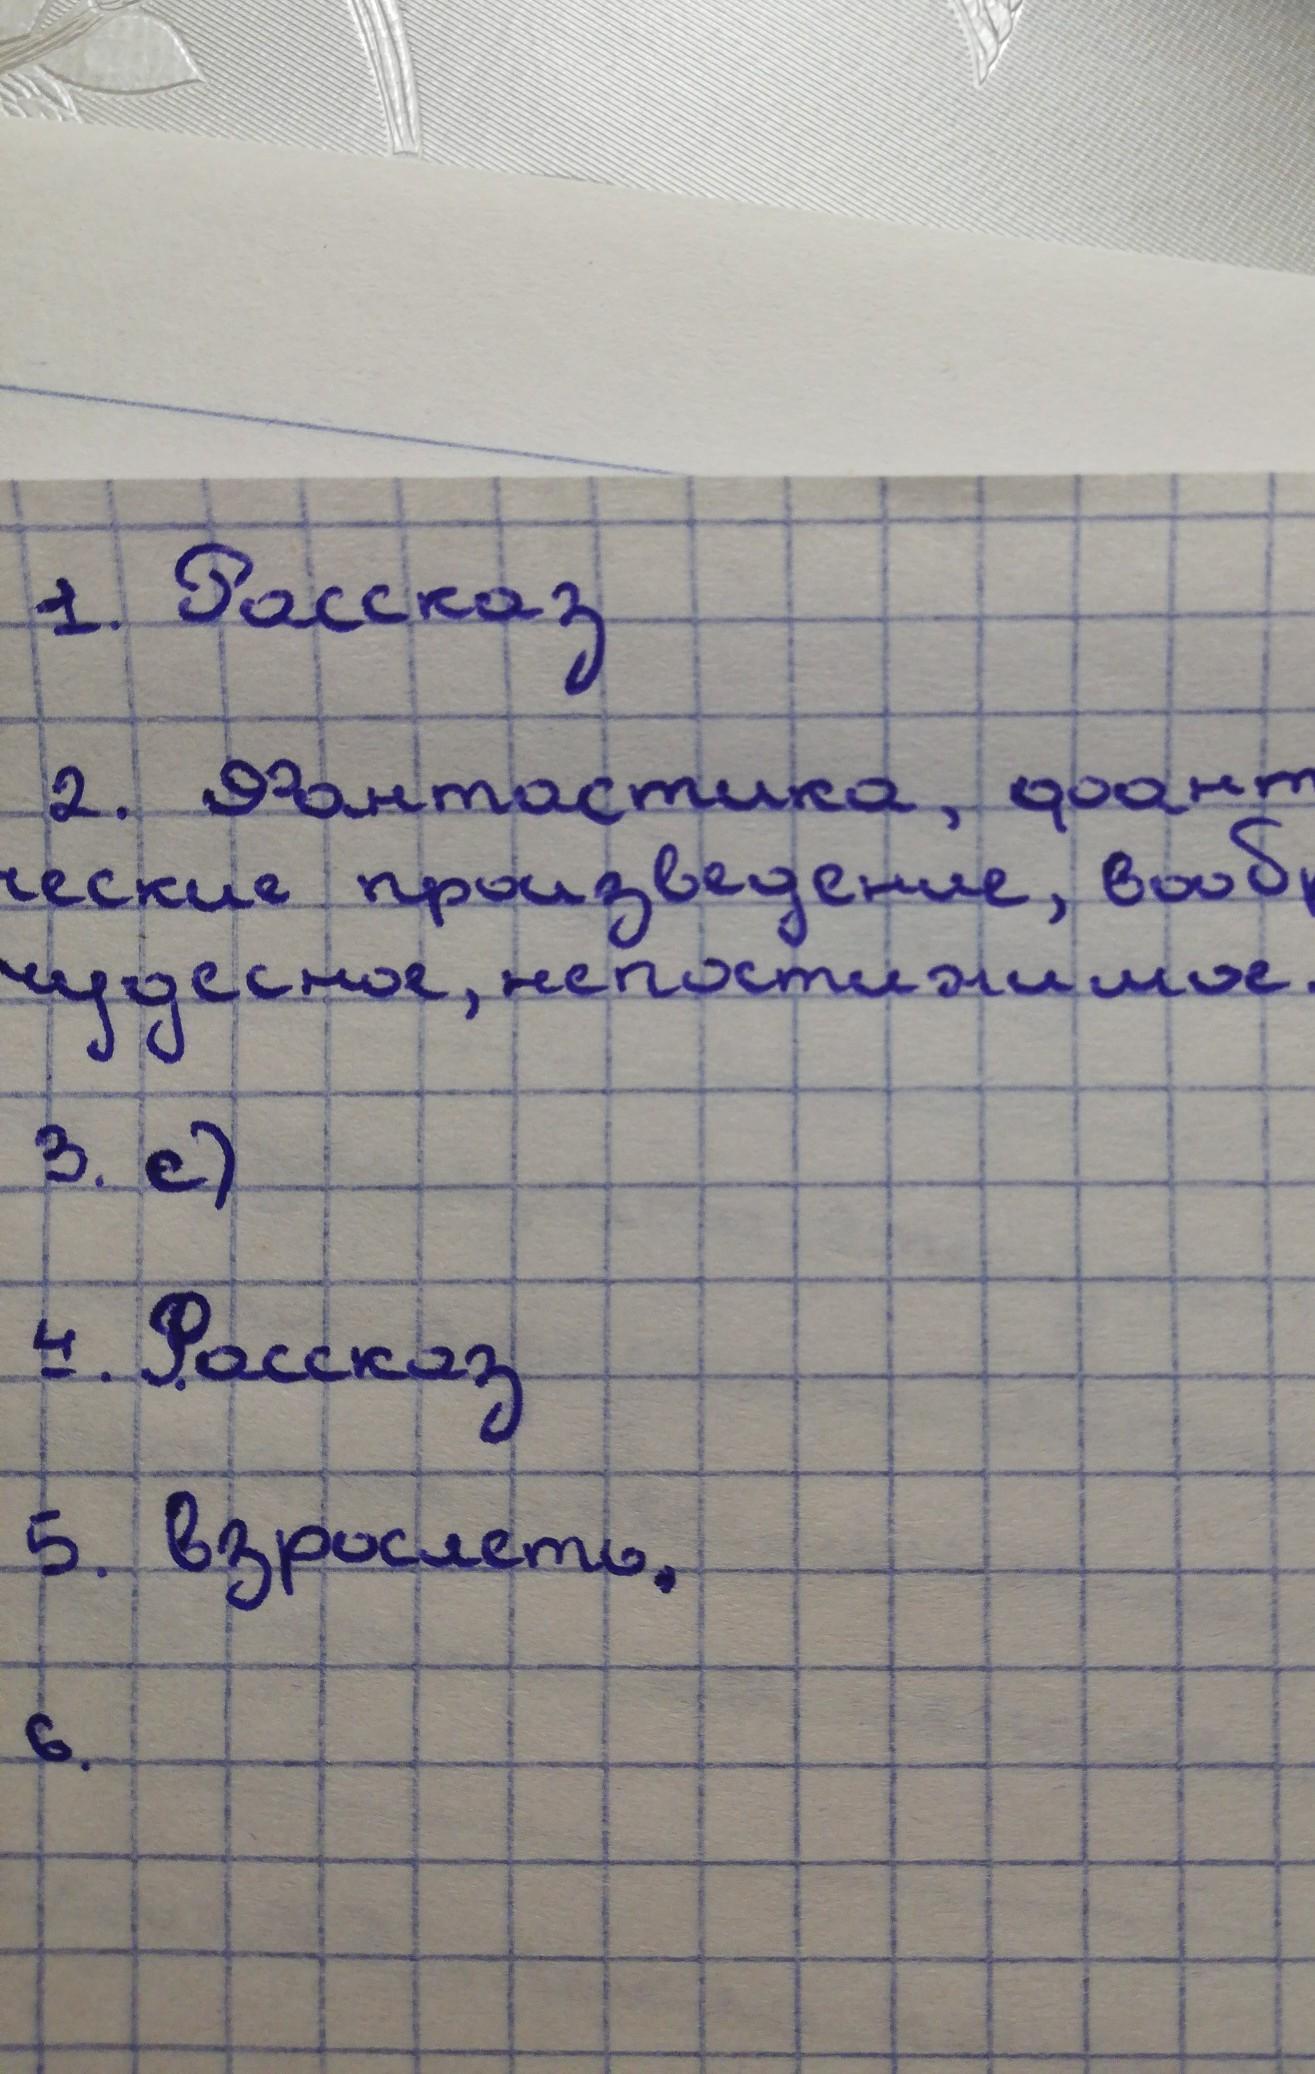 1. Рассказ
2. Фантастика, фант
ческие произведение, вообр
чудесное, непостижимое.
3. с)
4. Рассказ
5. взрослеть.
6.